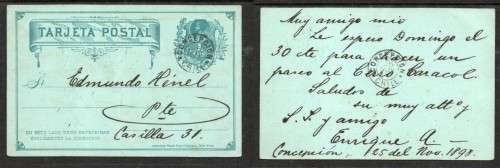 TARJETA POSTAL
Edmundo Hénel
Pte
Casilla 31.
EN ESTE LADO DEBE ESCRIBIRSE
UNICAMENTE LA DIRECCION
Muy amigo mio
Le espero Domingo el
30 cte para hacer un
paseo al Cerro Caracol
Saludos de
su muy atto y
S. S. y amigo
Enrique A
Concepción, 25 del Nov. 1898.